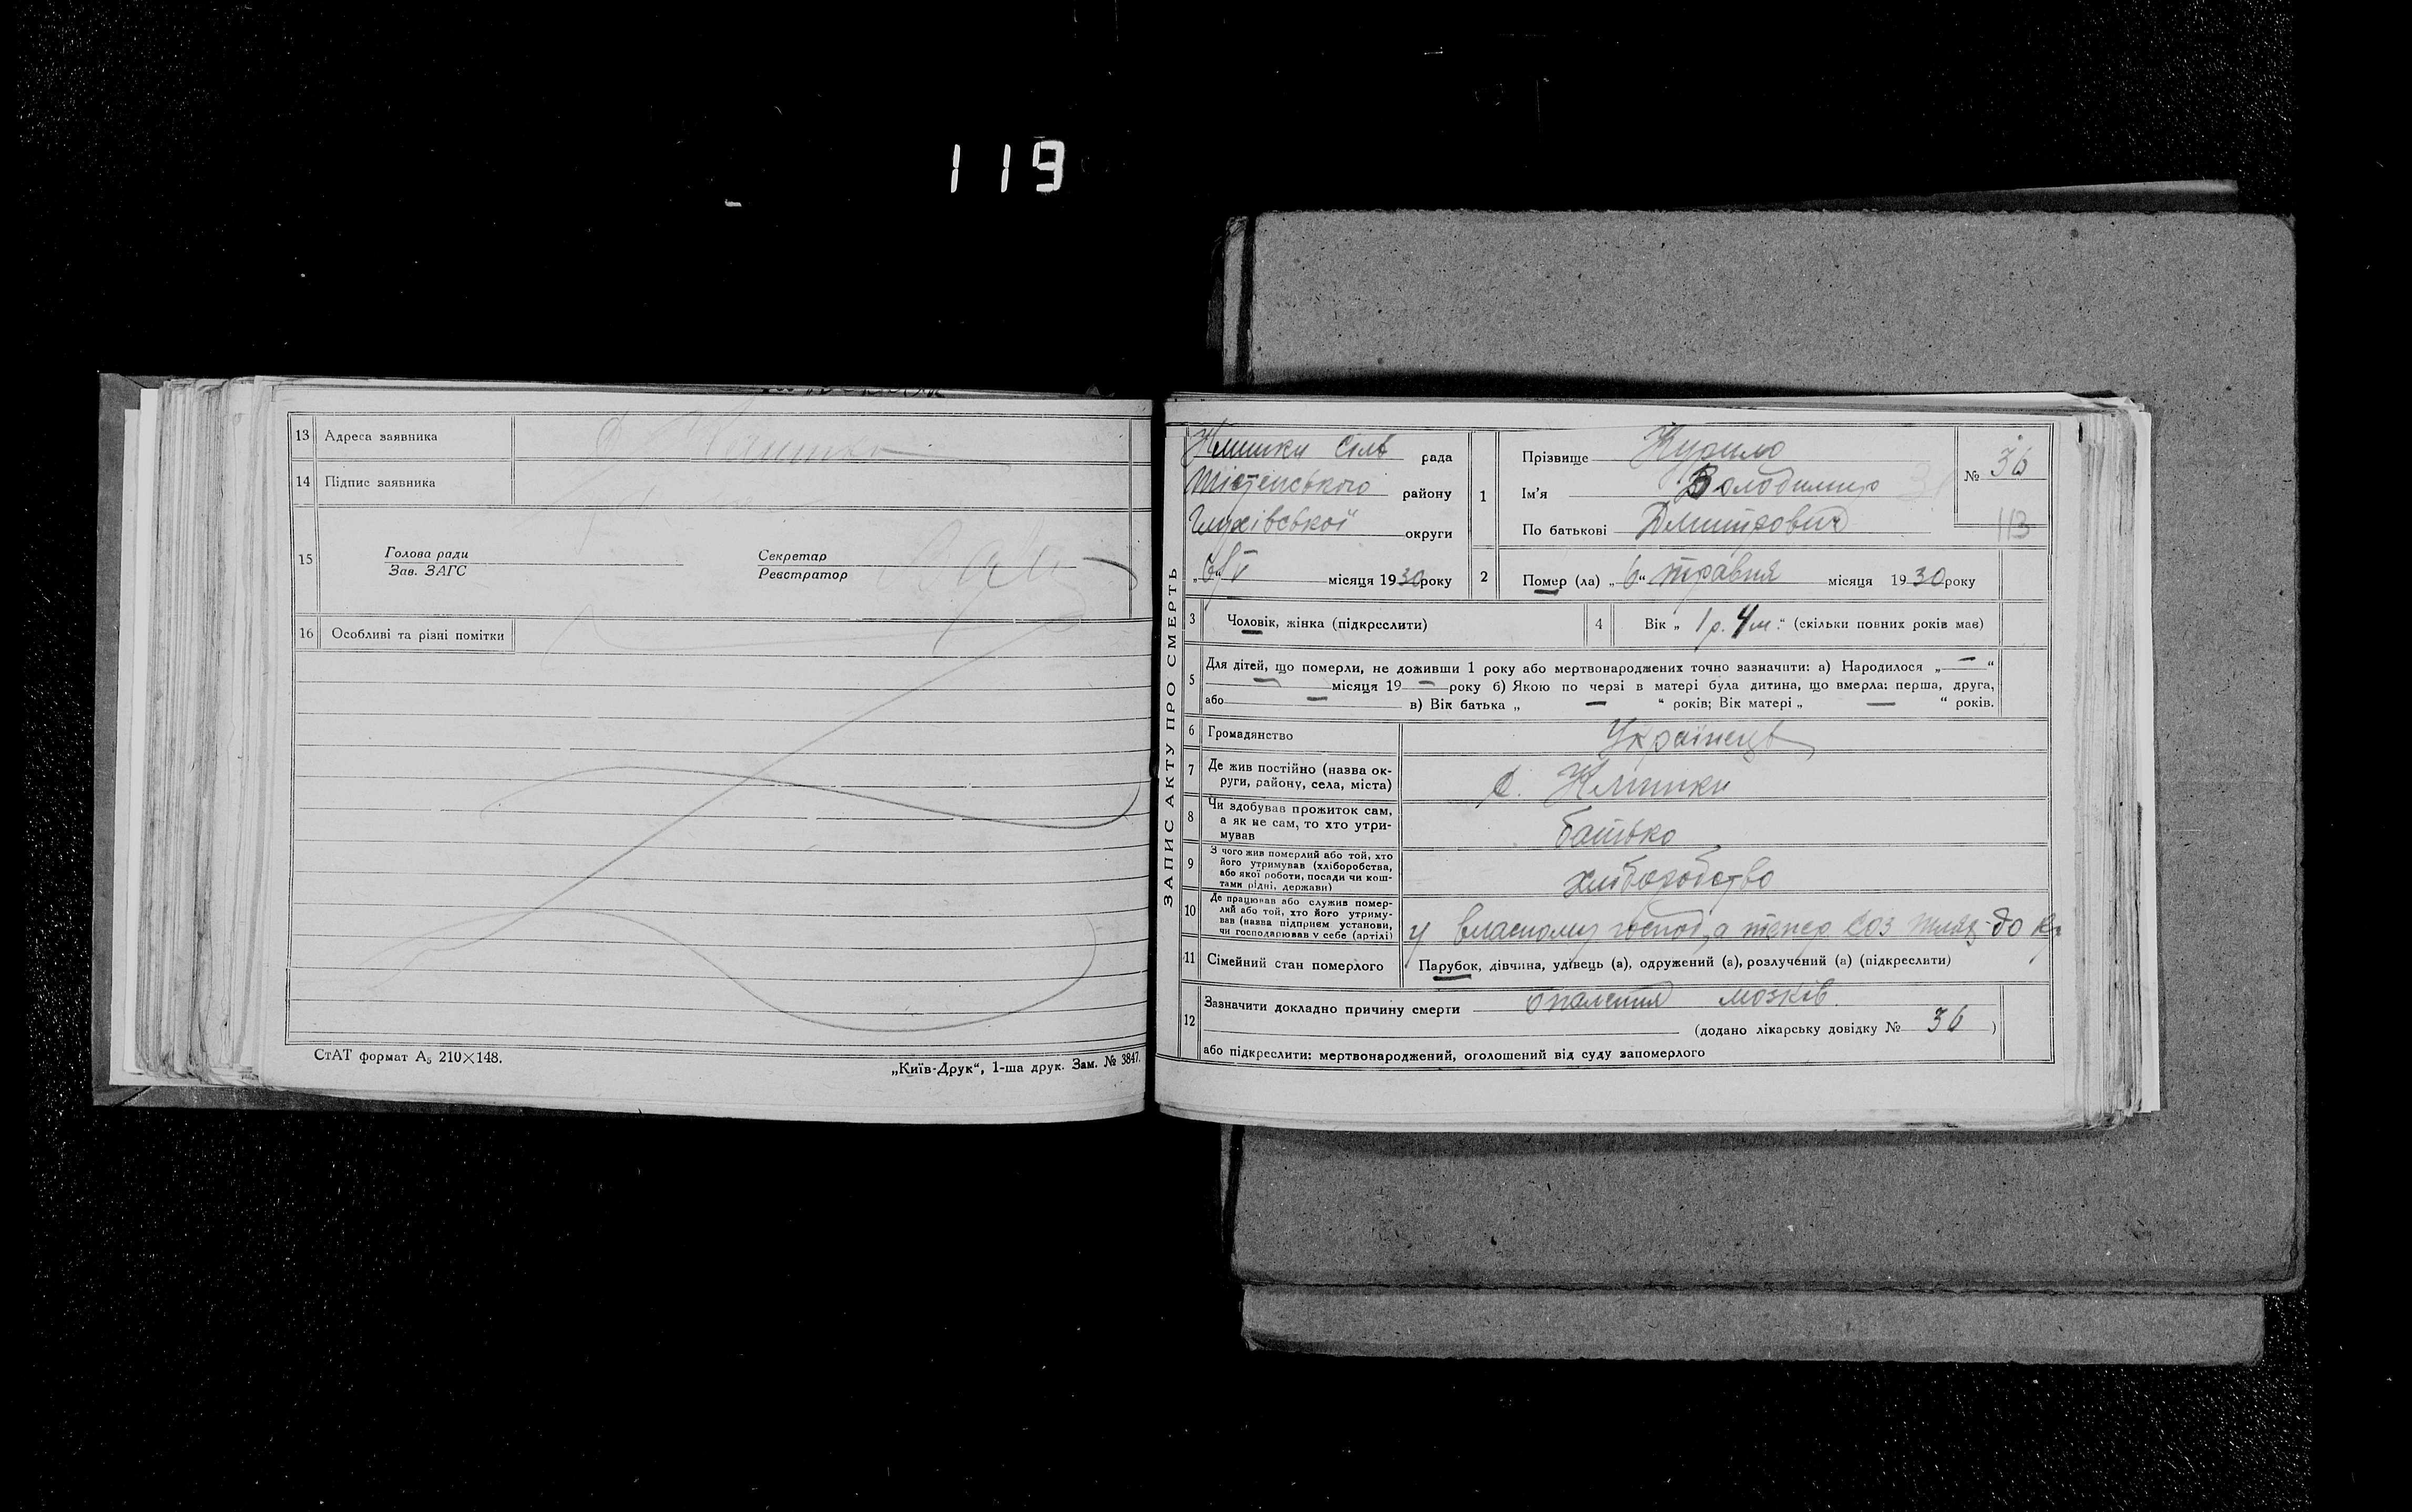 119
13 Адреса заявника
14 Підпис заявника
15 Голова ради
Зав. ЗАГС
Секретар
Реєстратор
16 Особливі та різні помітки
СтАТ формат А5 210×148.
„Київ-Друк“, 1-ша друк. Зам. № 3847.
ЗАПИС АКТУ ПРО СМЕРТЬ
Клишки Сіль рада
району
Глухівської округи
„6“ V місяця 1930 року
1 Прізвище
Ім'я Володимир
По батькові Дмитрович
№ 36
113
2 Помер (ла) „6“ травня місяця 1930 року
3 Чоловік, жінка (підкреслити)
4 Вік „1 р. 4 м.“ (скільки повних років мав)
5 Для дітей, що померли, не доживши 1 року або мертвонароджених точно зазначити: а) Народилося „—“
— місяця 19 — року б) Якою по черзі в матері була дитина, що вмерла: перша, друга,
або — в) Вік батька „ — “ років; Вік матері „ — “ років.
6 Громадянство Українець
7 Де жив постійно (назва ок-
руги, району, села, міста) с. Клишки
8 Чи здобував прожиток сам,
а як не сам, то хто утри-
мував батько
9 З чого жив померлий або той, хто
його утримував (хліборобства,
або якої роботи, посади чи кош-
тами рідні, держави) хліборобство
10 Де працював або служив помер-
лий або той, хто його утриму-
вав (назва підприєм установи,
чи господарював у себе (артілі) у власному господ, а тепер Соз
11 Сімейний стан померлого Парубок, дівчина, удівець (а), одружений (а), розлучений (а) (підкреслити)
12 Зазначити докладно причину смерти опалення мозків.
(додано лікарську довідку № 36 )
або підкреслити: мертвонароджений, оголошений від суду запомерлого